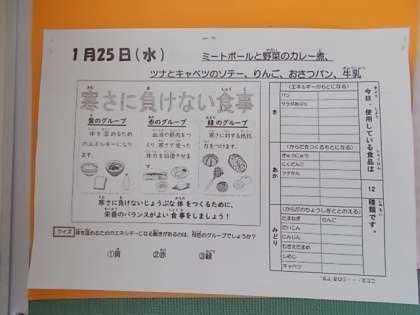 1月25日(水)
ミートボールと野菜のカレー煮、
ツナとキャベツのソテー、りんご、おさつパン、牛乳
寒さに負けない食事
黄のグループ
赤のグループ
緑のグループ
体を温めるため
のエネルギーになり
ます。
寒さに対する抵抗
力をつけます。
寒さに負けないじょうぶな体をつくるために、
栄養のバランスがよい食事をしましょう!
クイズ
体を温めるためのエネルギーになる働きがあるのは、何色のグループでしょうか?
①黄 ②赤 ③緑
今日、使用している食品は
12
種類です。
き
(エネルギーのもとになる)
パン
サラダあぶら
あか
(からだをつくるもとになる)
ぎゅうにゅう
にくだんご
ツナかん
みどり
(からだのちょうしをととのえる)
たまねぎ りんご
だいこん
にんじん
むきえだまめ
しめじ
キャベツ